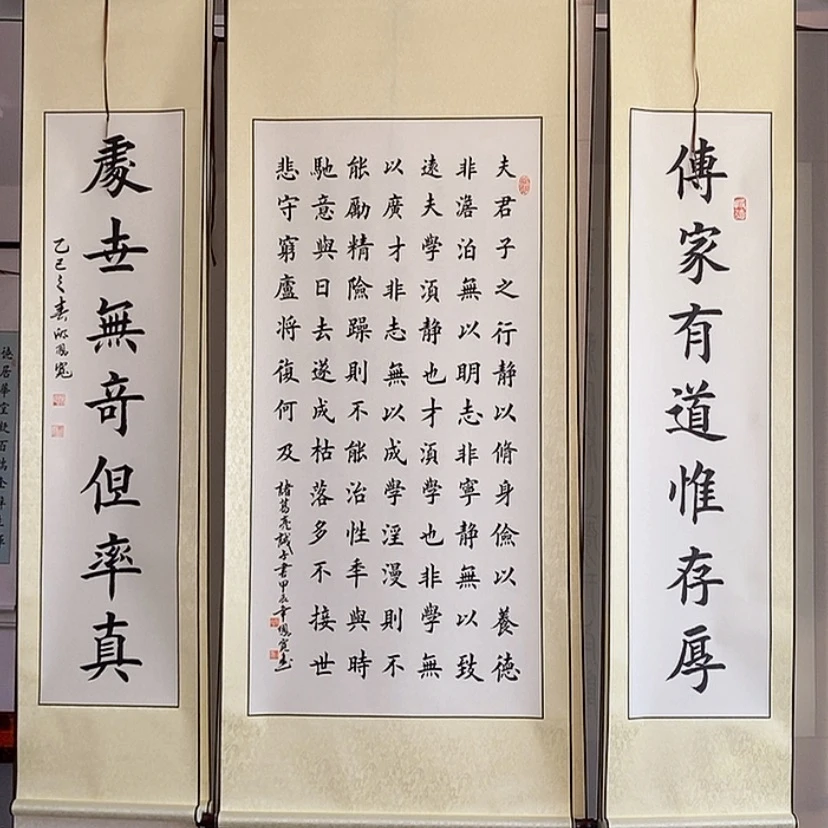 傳家有道惟存厚
夫君子之行静以脩身儉以養德
非澹泊無以明志非寧静無以致
遠夫學須静也才須學也非學無
以廣才非志無以成學淫漫則不
能勵精險躁則不能治性年與時
馳意與日去遂成枯落多不接世
悲守窮廬將復何及
諸葛亮誡子書甲辰年鳳寬書
處世無奇但率真
乙巳之春鳳寬